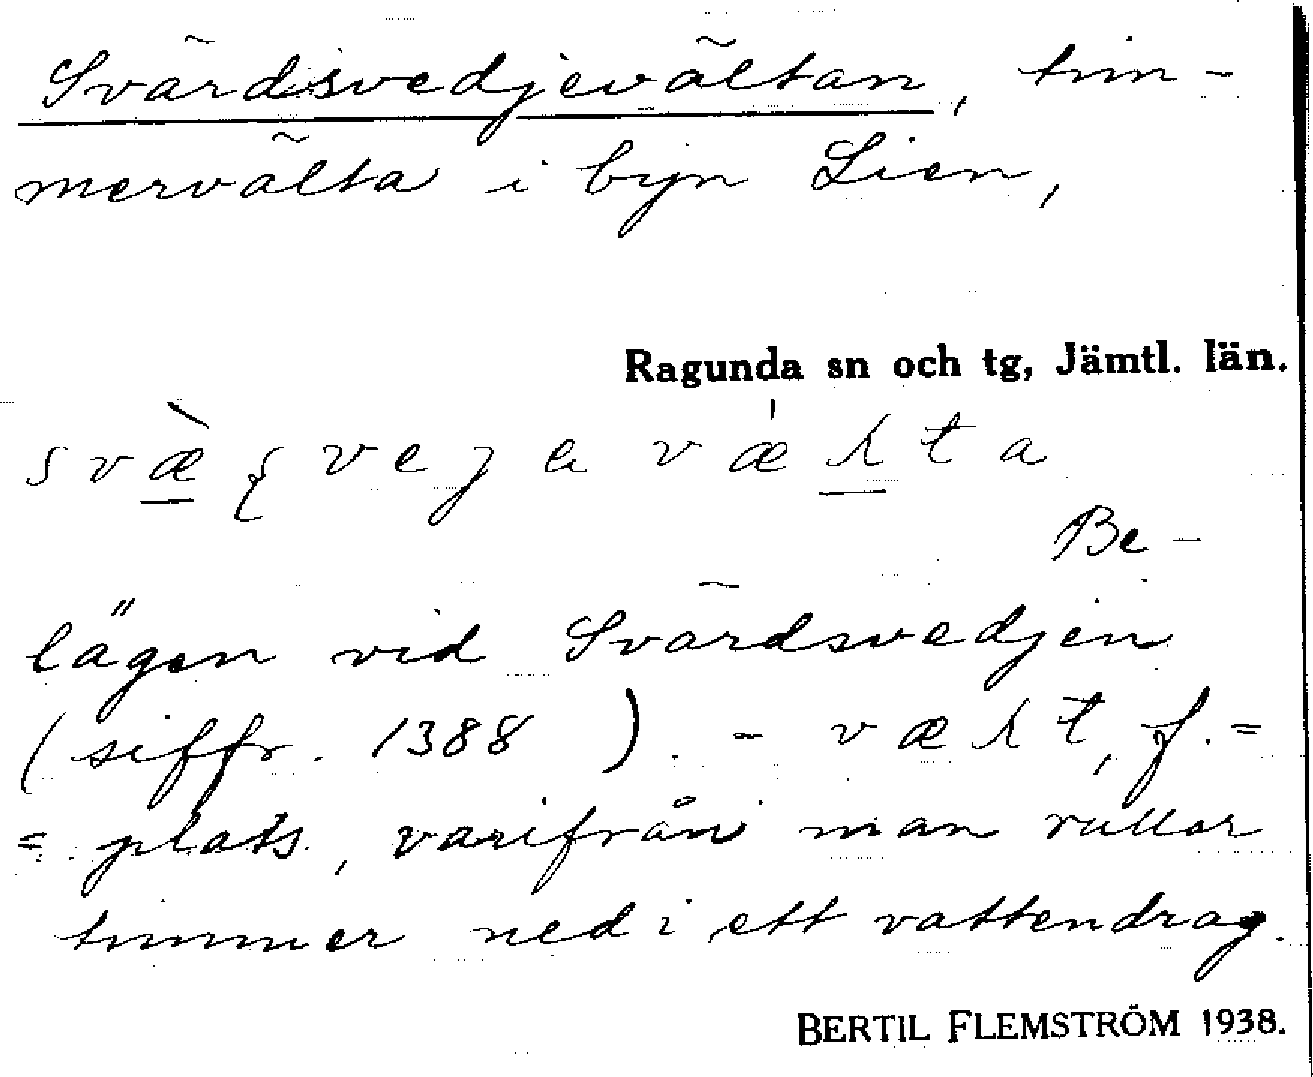 Svärdsvedjevältan, tim-
mervälta i byn Lien,
Ragunda sn och tg, Jämtl. län.
Be-
lägen vid Svärdsvedjen
(siffr. 1388 ). - væʌt, f. =
= plats, varifrån man rullar
timmer ned i ett vattendrag.
BERTIL FLEMSTRÖM 1938.